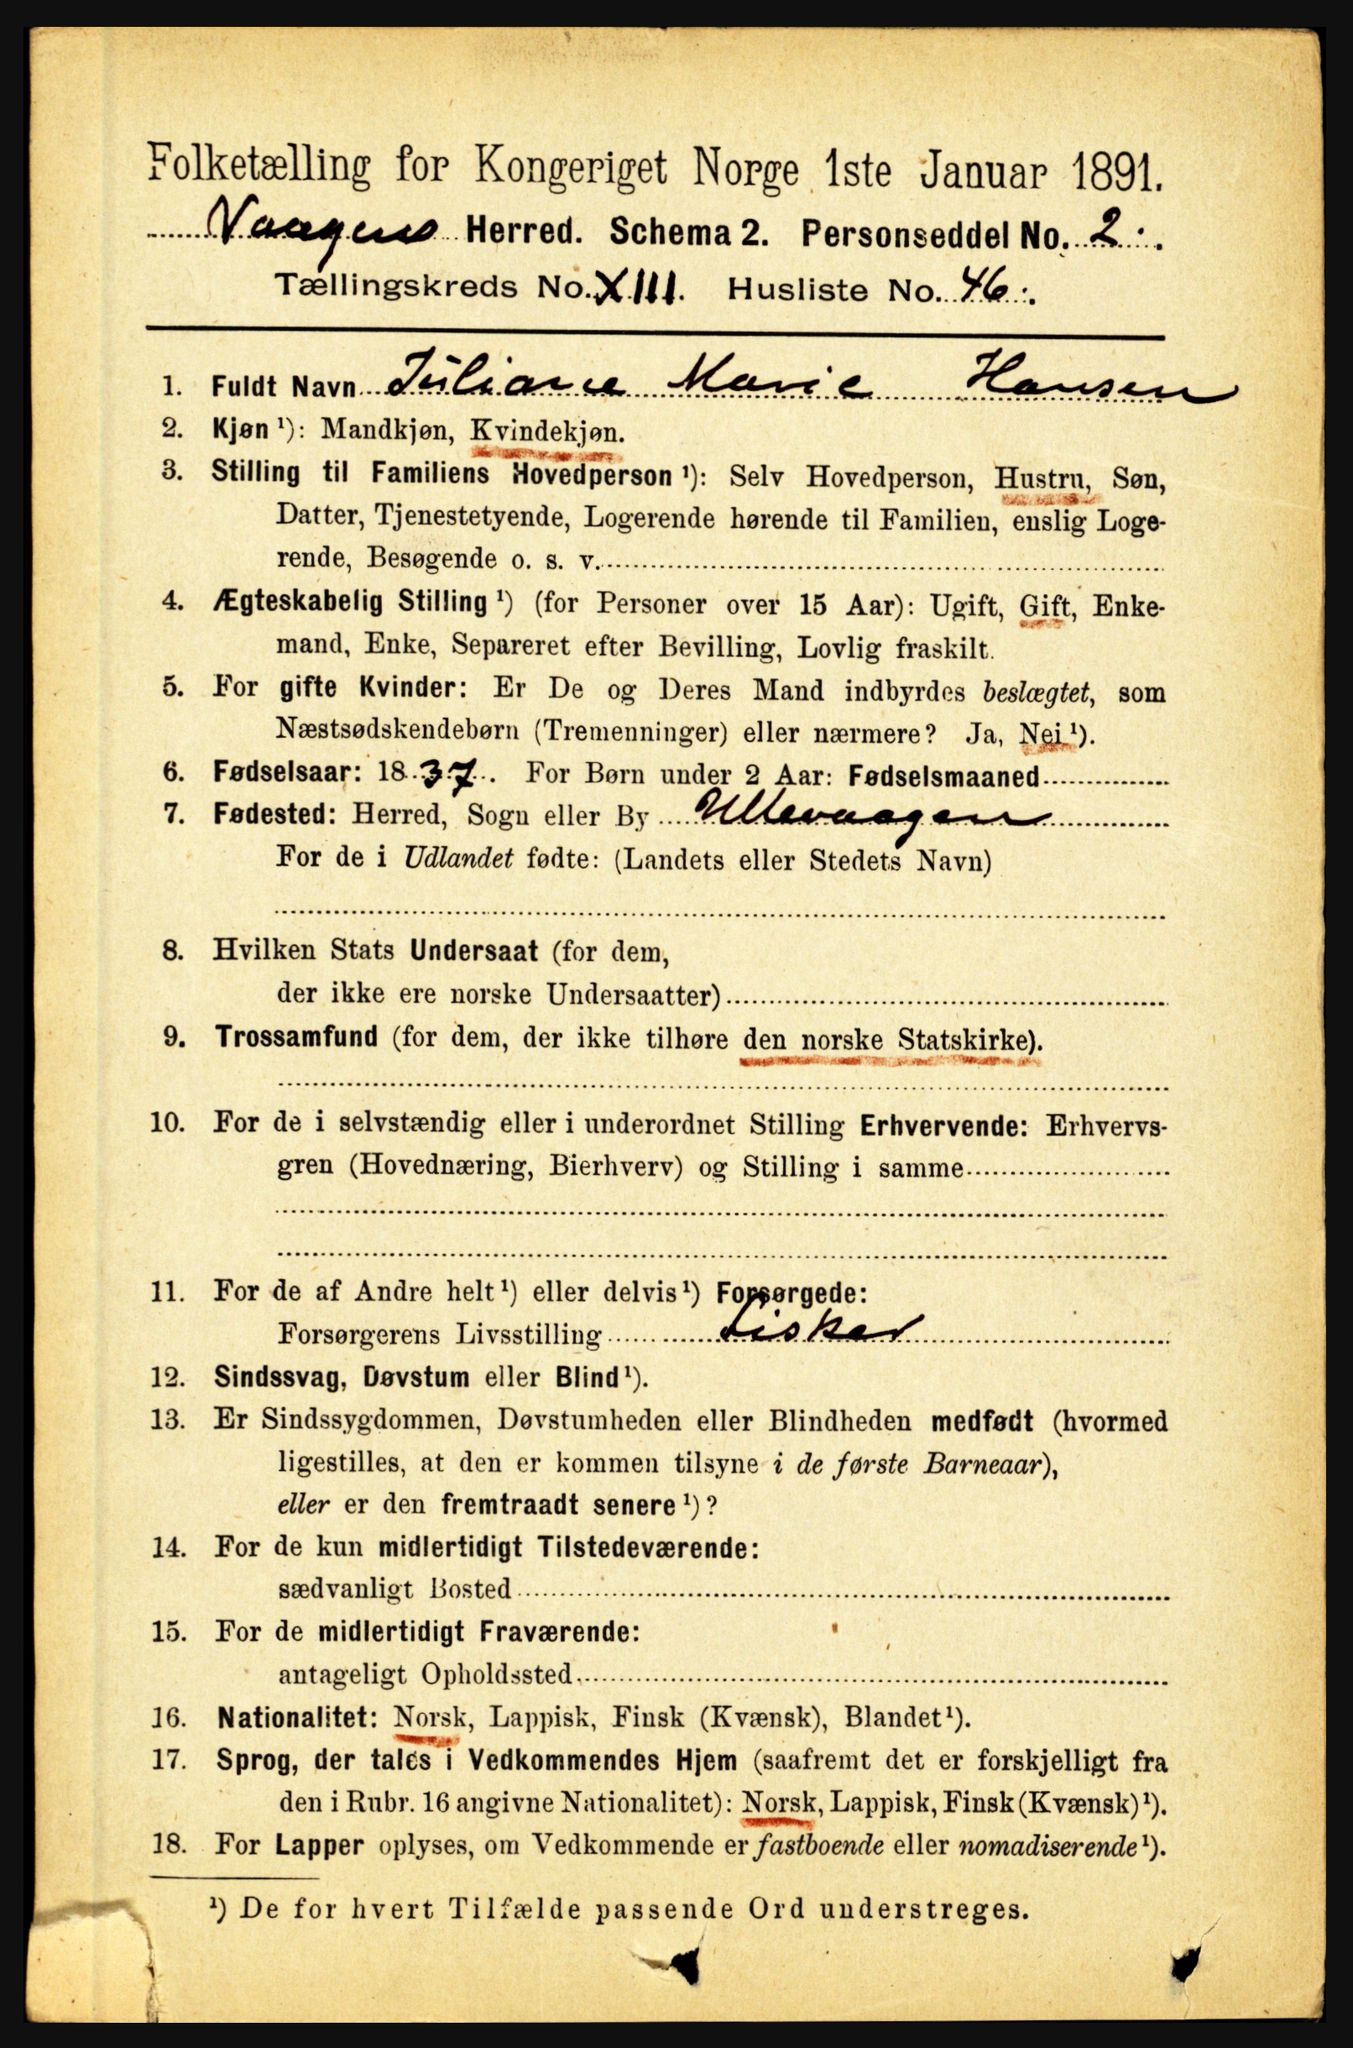 Folketælling for Kongeriget Norge 1ste Januar 1891.
Vaagens Herred. Schema 2. Personseddel No. 2.
Tællingskreds No. XIII. Husliste No. 46.
1. Fuldt Navn Juliane Marie Hansen
2. Kjøn ¹): Mandkjøn, Kvindekjøn.
3. Stilling til Familiens Hovedperson ¹): Selv Hovedperson, Hustru, Søn,
Datter, Tjenestetyende, Logerende hørende til Familien, enslig Loge-
rende, Besøgende o. s. v.
4. Ægteskabelig Stilling ¹) (for Personer over 15 Aar): Ugift, Gift, Enke-
mand, Enke, Separeret efter Bevilling, Lovlig fraskilt.
5. For gifte Kvinder: Er De og Deres Mand indbyrdes beslægtet, som
Næstsødskendebørn (Tremenninger) eller nærmere? Ja, Nei ¹).
6. Fødselsaar: 1837. For Børn under 2 Aar: Fødselsmaaned
7. Fødested: Herred, Sogn eller By Ullevaagen
For de i Udlandet fødte: (Landets eller Stedets Navn)
8. Hvilken Stats Undersaat (for dem,
der ikke ere norske Undersaatter)
9. Trossamfund (for dem, der ikke tilhøre den norske Statskirke).
10. For de i selvstændig eller i underordnet Stilling Erhvervende: Erhvervs-
gren (Hovednæring, Bierhverv) og Stilling i samme
11. For de af Andre helt ¹) eller delvis ¹) Forsørgede:
Forsørgerens Livsstilling Fisker
12. Sindssvag, Døvstum eller Blind ¹).
13. Er Sindssygdommen, Døvstumheden eller Blindheden medfødt (hvormed
ligestilles, at den er kommen tilsyne i de første Barneaar),
eller er den fremtraadt senere ¹)?
14. For de kun midlertidigt Tilstedeværende:
sædvanligt Bosted
15. For de midlertidigt Fraværende:
antageligt Opholdssted
16. Nationalitet: Norsk, Lappisk, Finsk (Kvænsk), Blandet ¹).
17. Sprog, der tales i Vedkommendes Hjem (saafremt det er forskjelligt fra
den i Rubr. 16 angivne Nationalitet): Norsk, Lappisk, Finsk (Kvænsk) ¹).
18. For Lapper oplyses, om Vedkommende er fastboende eller nomadiserende ¹).
¹) De for hvert Tilfælde passende Ord understreges.